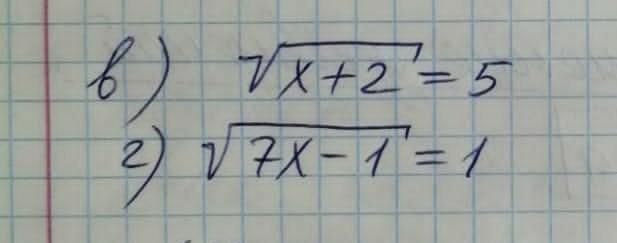 в) √(x+2) = 5
г) √(7x-1) = 1